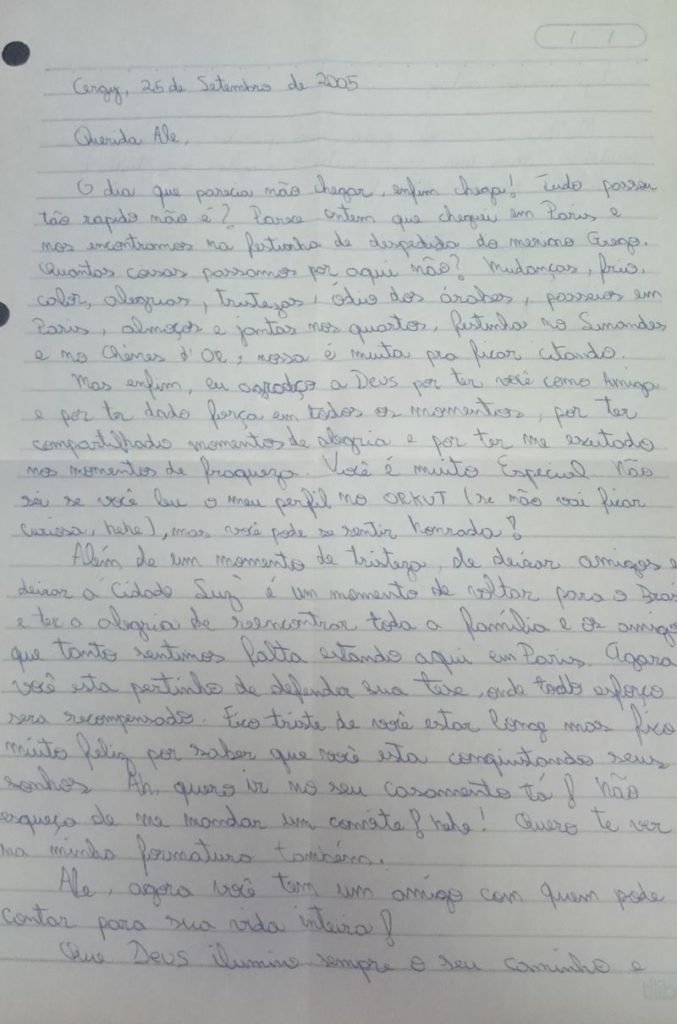 Cergy, 25 de Setembro de 2005
Querida Ale,
O dia que parecia não chegar, enfim chega! Tudo passou
tão rapido não é? Parece ontem que cheguei em Paris e
nos encontramos na festinha de despedida do menino Grego.
Quantas coisas passamos por aqui não? Mudanças, frio,
calor, alegrias, tristezas, ódio dos árabes, passeios em
Paris, almoços e jantas nos quartos, festinha no Simondes
e no Chênes d'OR, nossa é muita pra ficar citando.
Mas enfim, eu agradeço a Deus por ter você como Amiga
e por ter dado força em todos os momentos, por ter
compartilhado momentos de alegria e por ter me escutado
nos momentos de fraqueza. Você é muito Especial. Não
sei se você leu o meu perfil no ORKUT (se não vai ficar
curiosa, hehe), mas você pode se sentir honrada!
Além de um momento de tristeza, de deixar amigos e
deixar a "Cidade Luz" é um momento de voltar para o Bras
e ter a alegria de reencontrar toda a família e os amigo
que tanto sentimos falta estando aqui em Paris. Agora
você esta pertinho de defender sua tese, onde todo esforço
sera recompensado. Fico triste de você estar long mas fico
muito feliz por saber que você esta conquistando seus
sonhos. Ah, quero ir no seu casamento tá! Não
esqueça de me mandar um convite! hehe! Quero te ver
na minha formatura também.
Ale, agora você tem um amigo com quem pode
contar para sua vida inteira!
Que Deus ilumine sempre o seu caminho e